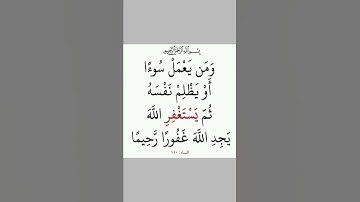 بِسْمِ اللَّهِ الرَّحْمَٰنِ الرَّحِيمِ
وَمَن يَعْمَلْ سُوءًا
أَوْ يَظْلِمْ نَفْسَهُ
ثُمَّ يَسْتَغْفِرِ اللَّهَ
يَجِدِ اللَّهَ غَفُورًا رَّحِيمًا
النساء : ١١٠